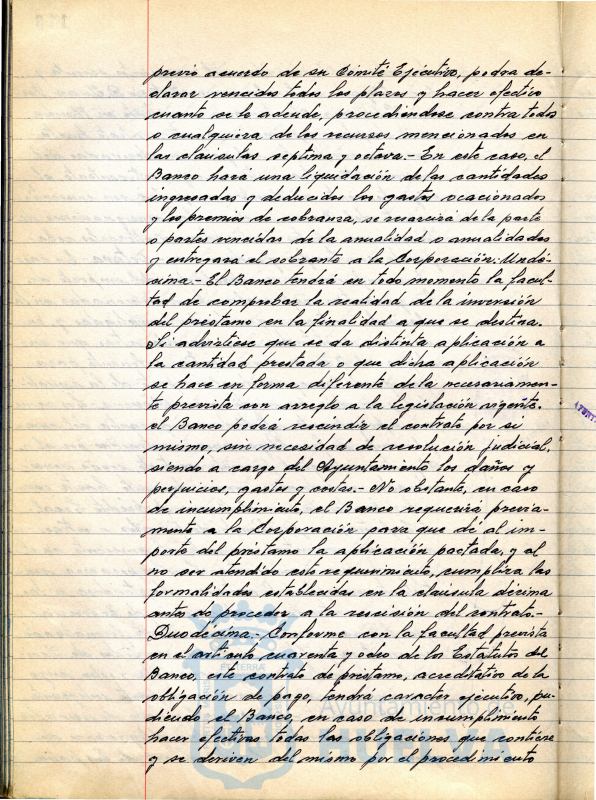 previo acuerdo de su Comité Ejecutivo, podra de-
clarar vencidos todos los plazos y hacer efectivo
cuanto se le adeude, procediéndose contra todos
o cualquiera de los recursos mencionados en
las clausulas septima y octava.- En este caso, el
Banco hará una liquidación de las cantidades
ingresadas y deducidos los gastos ocacionados
y los premios de cobranza, se resarcirá de la parte
o partes vencidas de la anualidad o anualidades
y entregará el sobrante a la Corporación.- Undé-
sima.- El Banco tendrá en todo momento la facul-
tad de comprobar la realidad de la inversión
del préstamo en la finalidad a que se destina.
Si advirtiese que se da distinta aplicación a
la cantidad prestada o que dicha aplicación
se hace en forma diferente de la necesariamen-
te prevista con arreglo a la legislación vigente,
el Banco podrá rescindir el contrato por si
mismo, sin necesidad de resolución judicial,
siendo a cargo del Ayuntamiento los daños y
perjuicios, gastos y costas.- No obstante, en caso
de incumplimiento, el Banco requerirá previa-
mente a la Corporación para que dé al im-
porte del préstamo la aplicación pactada, y al
no ser atendido este requerimiento, cumplira las
formalidades establecidas en la clausula décima
antes de proceder a la rescisión del contrato.-
Duodécima.- Conforme con la facultad prevista
en el articulo cuarenta y ocho de los Estatutos del
Banco, este contrato de préstamo, acreditativo de la
obligación de pago, tendrá caracter ejecutivo, pu-
diendo el Banco, en caso de incumplimiento
hacer efectivas todas las obligaciones que contiene
y se deriven del mismo por el procedimiento
Ayuntamiento de
HUELVA